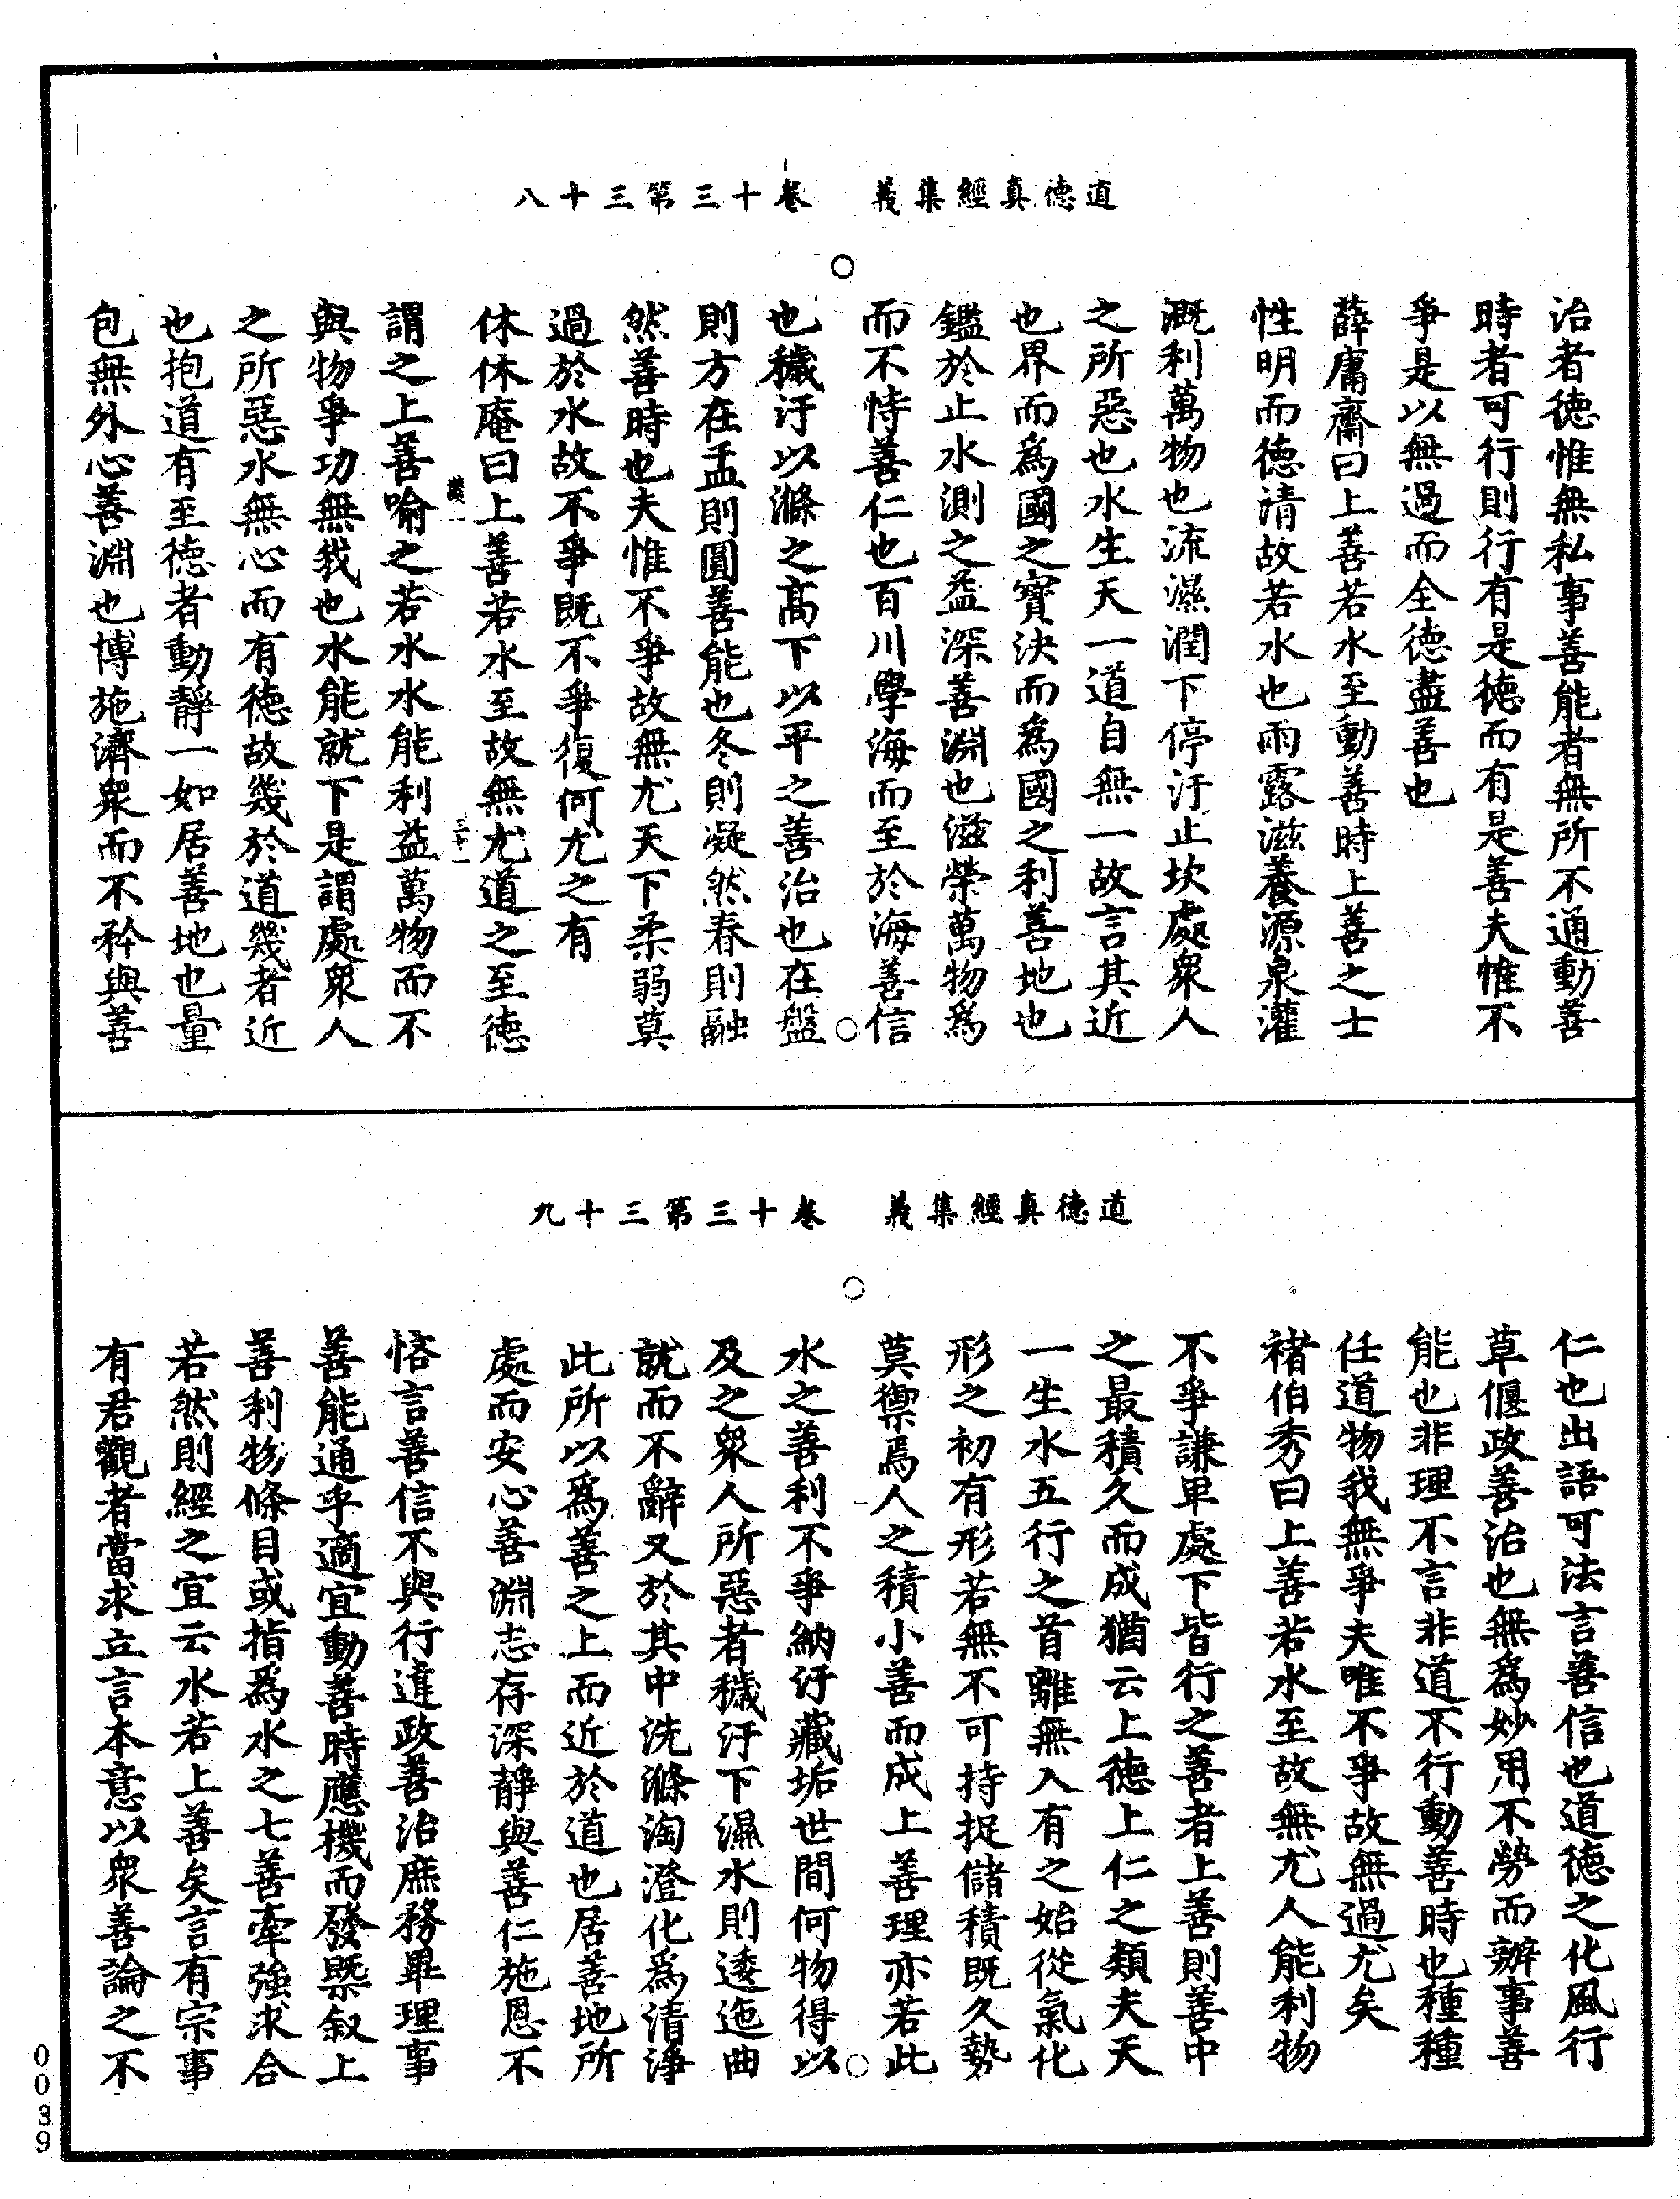 道德真經集義　卷十三第三十八
治者德惟無私事善能者無所不通動善
時者可行則行有是德而有是善夫惟不
爭是以無過而全德盡善也
薛庸齋曰上善若水至動善時上善之士
性明而德清故若水也雨露滋養源泉灌
溉利萬物也流濕潤下停汙止坎處衆人
之所惡也水生天一道自無一故言其近
也界而爲國之寶決而爲國之利善地也
鑑於止水測之益深善淵也滋榮萬物爲
而不恃善仁也百川學海而至於海善信
也穢汙以滌之高下以平之善治也在盤
則方在盂則圓善能也冬則凝然春則融
然善時也夫惟不爭故無尤天下柔弱莫
過於水故不爭既不爭復何尤之有
休休庵曰上善若水至故無尤道之至德
謂之上善喻之若水水能利益萬物而不
與物爭功無我也水能就下是謂處衆人
之所惡水無心而有德故幾於道幾者近
也抱道有至德者動靜一如居善地也量
包無外心善淵也博施濟衆而不矜與善
道德真經集義　卷十三第三十九
仁也出語可法言善信也道德之化風行
草偃政善治也無爲妙用不勞而辦事善
能也非理不言非道不行動善時也種種
任道物我無爭夫唯不爭故無過尤矣
褚伯秀曰上善若水至故無尤人能利物
不爭謙卑處下皆行之善者上善則善中
之最積久而成猶云上德上仁之類夫天
一生水五行之首離無入有之始從氣化
形之初有形若無不可持捉儲積既久勢
莫禦焉人之積小善而成上善理亦若此
水之善利不爭納汙藏垢世間何物得以
及之衆人所惡者穢汙下濕水則逶迤曲
就而不辭又於其中洗滌淘澄化爲清淨
此所以爲善之上而近於道也居善地所
處而安心善淵志存深靜與善仁施恩不
悋言善信不與行違政善治庶務畢理事
善能通乎適宜動善時應機而發槩叙上
善利物條目或指爲水之七善牽強求合
若然則經之宜云水若上善矣言有宗事
有君觀者當求立言本意以衆善論之不
0039